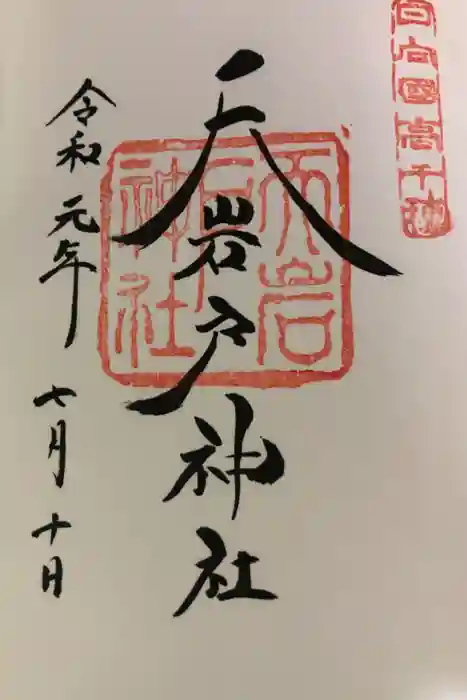 日向國高千穂
天岩戸神社
天岩戸神社
令和元年七月十日